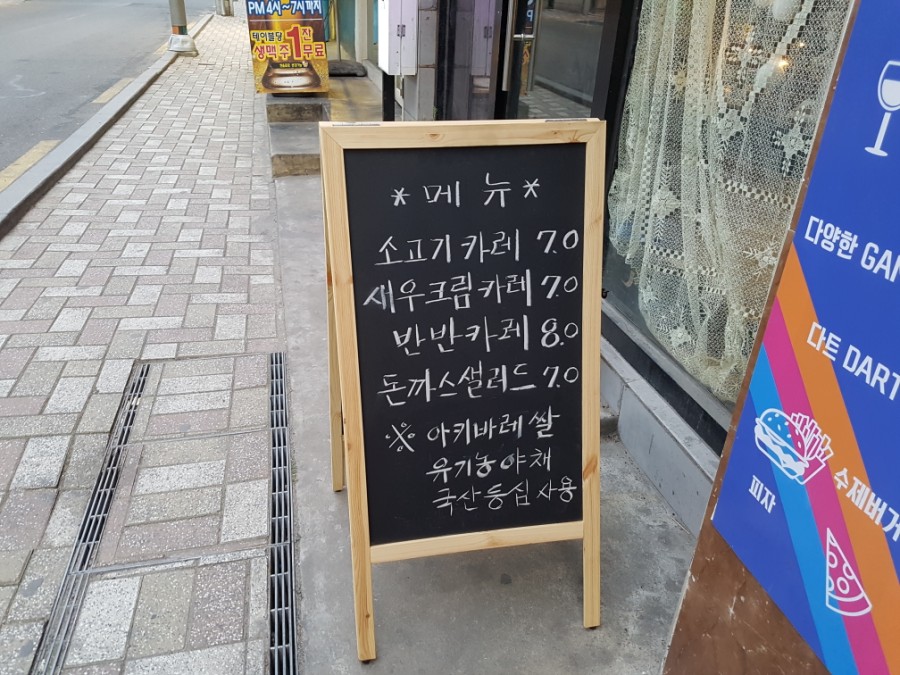 PM 4시~7시까지
테이블당 1잔
생맥주 무료
* 메뉴 *
소고기카레 7.0
새우크림카레 7.0
반반카레 8.0
돈까스샐러드 7.0
※ 아키바레쌀
유기농야채
국산등심사용
다양한 GA
다트 DART
수제버거
피자